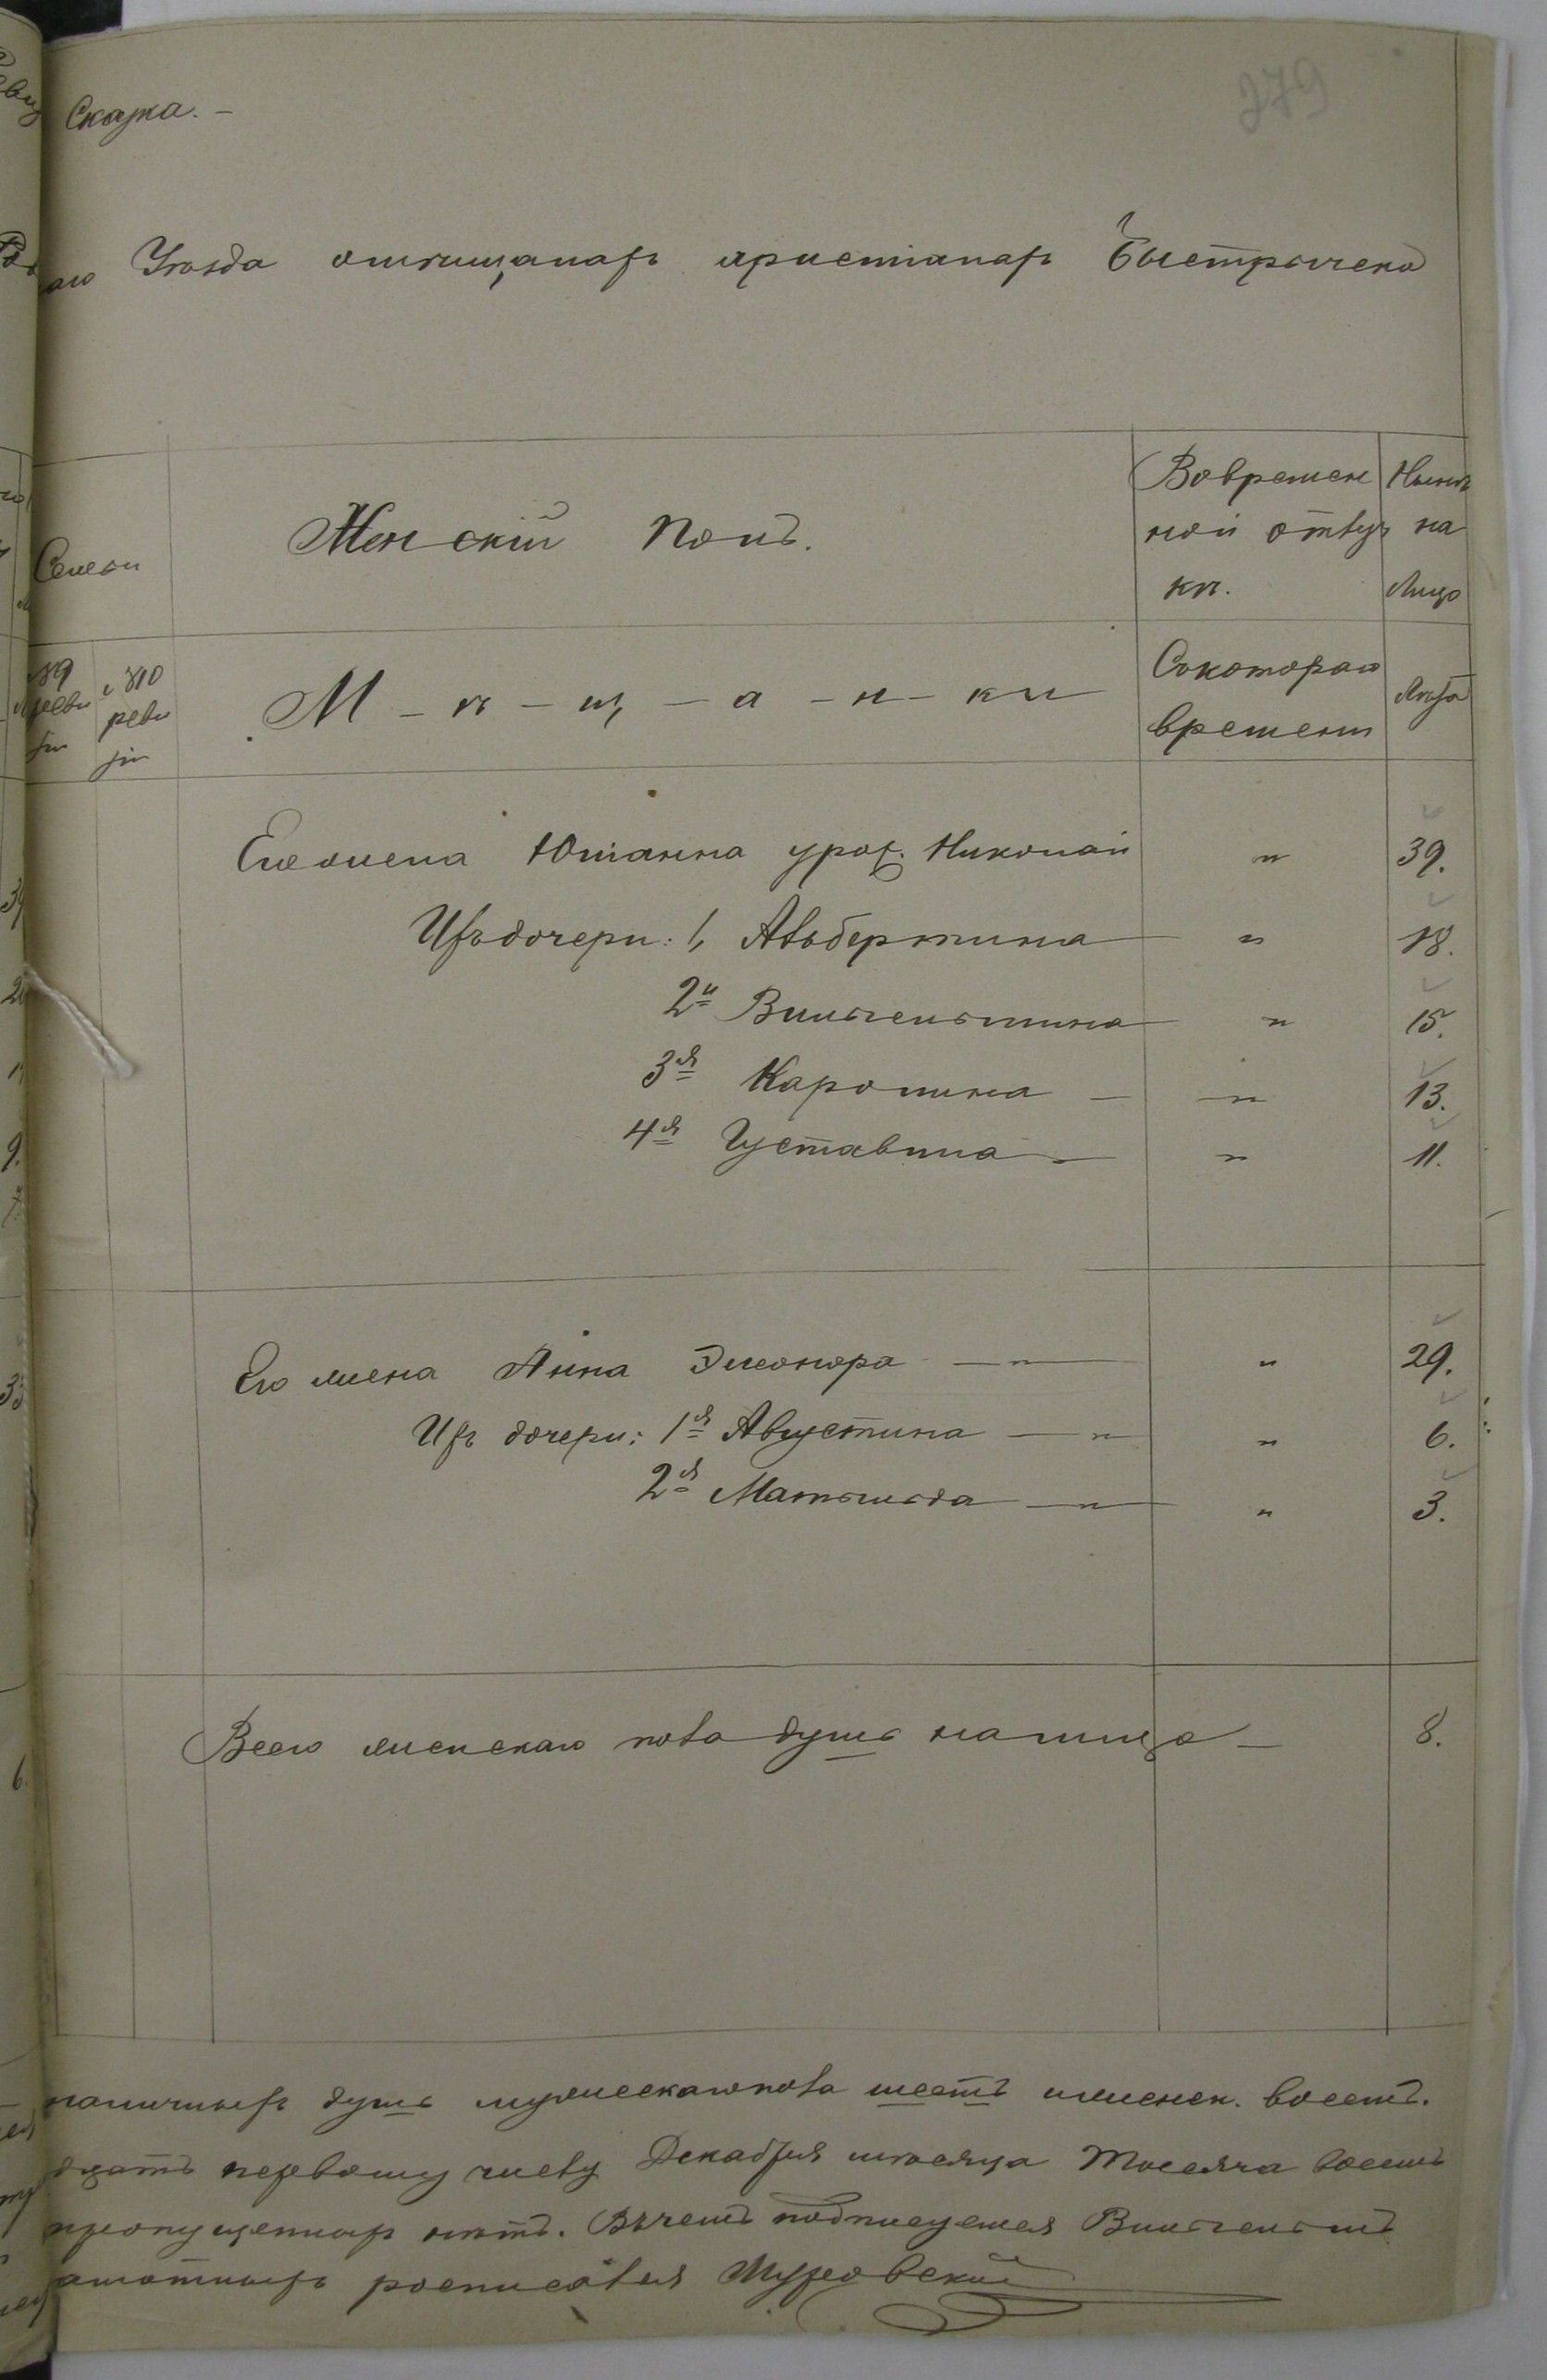 279
Сказка. –
аго Уѣзда о мѣщанахъ христіанахъ Быстрыческо
Семьи
Женскій полъ.
Вовремен
ной отлуч
кѣ.
Нынѣ
на
Лицо
9 реви
зіи
10 реви
зіи
М – ѣ – щ – а – н – ки
Скотораго
времени
Лѣта
Его жена Юліанна урож. Николай " 39.
Ихъ дочери: 1, Альбертина " 18.
2я Вильгельмина " 15.
3я Каролина – " 13.
4я Густавина – " 11.
Его жена Анна Элеонора – " – " 29.
Ихъ дочери: 1я Августина – " – " 6.
2я Матильда – " – " 3.
Всего женскаго пола душъ налицо – 8.
наличныхъ душъ мужескаго пола шесть и женск. восемь.
дцать первому числу Декабря мѣсяца Тысяча восемь
пропущенныхъ нѣтъ. Въ чемъ подписуемся Вильгельмъ
амотныхъ росписался Музовский